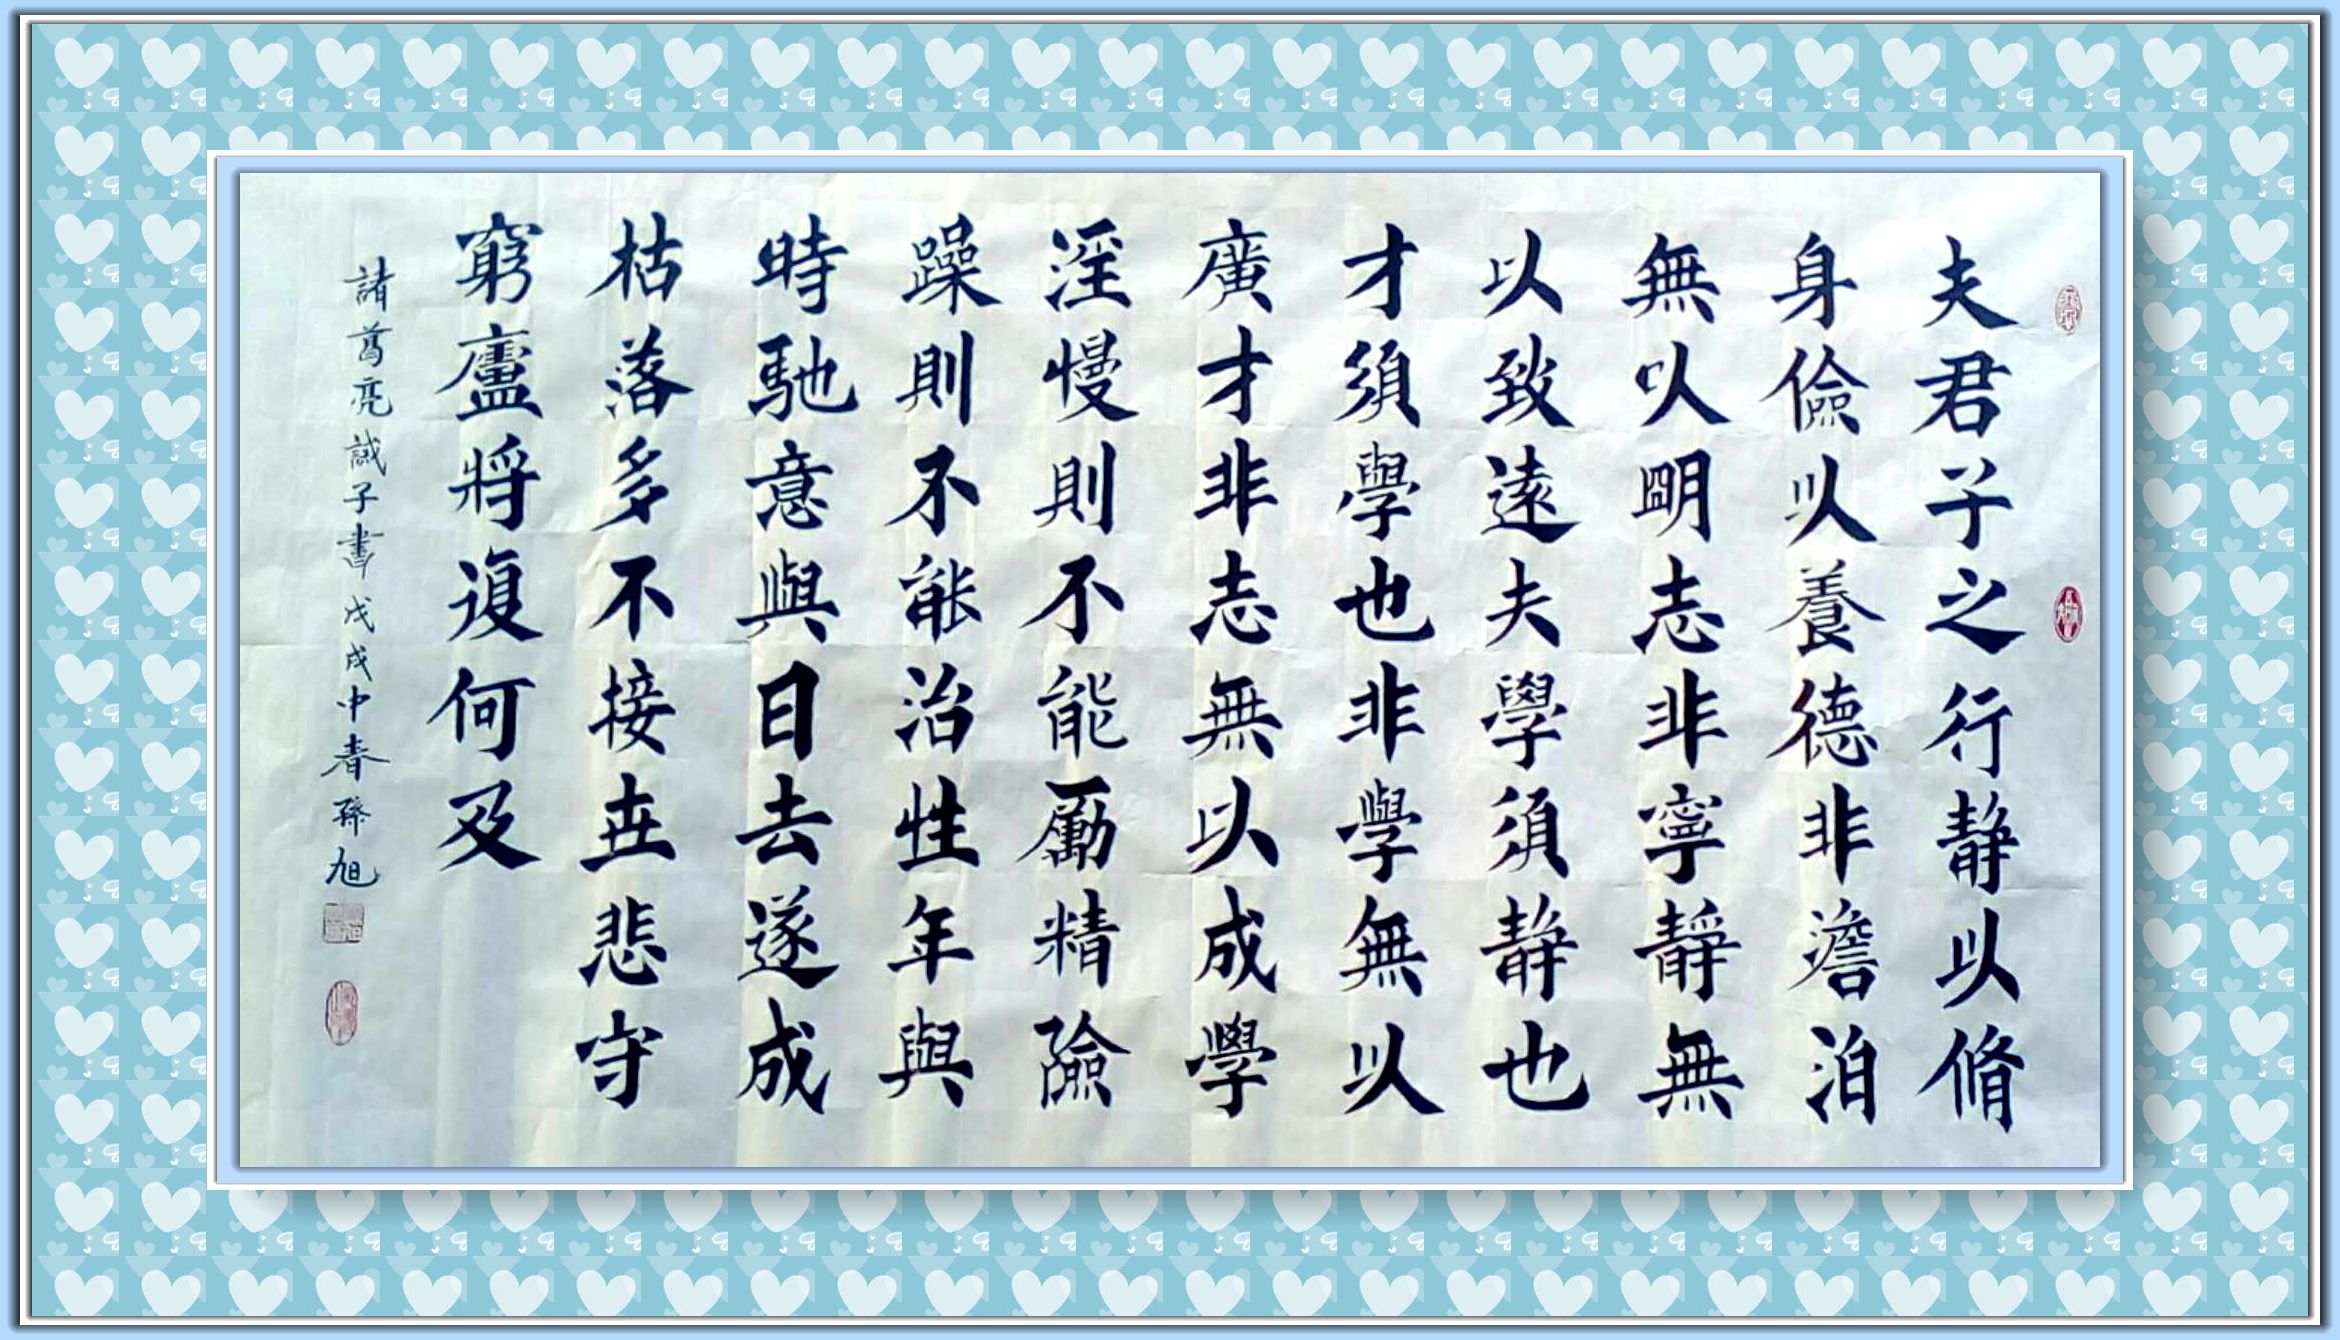 夫君子之行静以脩
身儉以養德非澹泊
無以明志非寧靜無
以致遠夫學須静也
才須學也非學無以
廣才非志無以成學
淫慢則不能勵精險
躁則不能治性年與
時馳意與日去遂成
枯落多不接世悲守
窮廬將復何及
諸葛亮誡子書戊戌中春孫旭